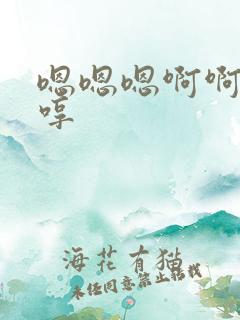 嗯嗯嗯啊啊
哼
海花有猫
未经同意禁止转载